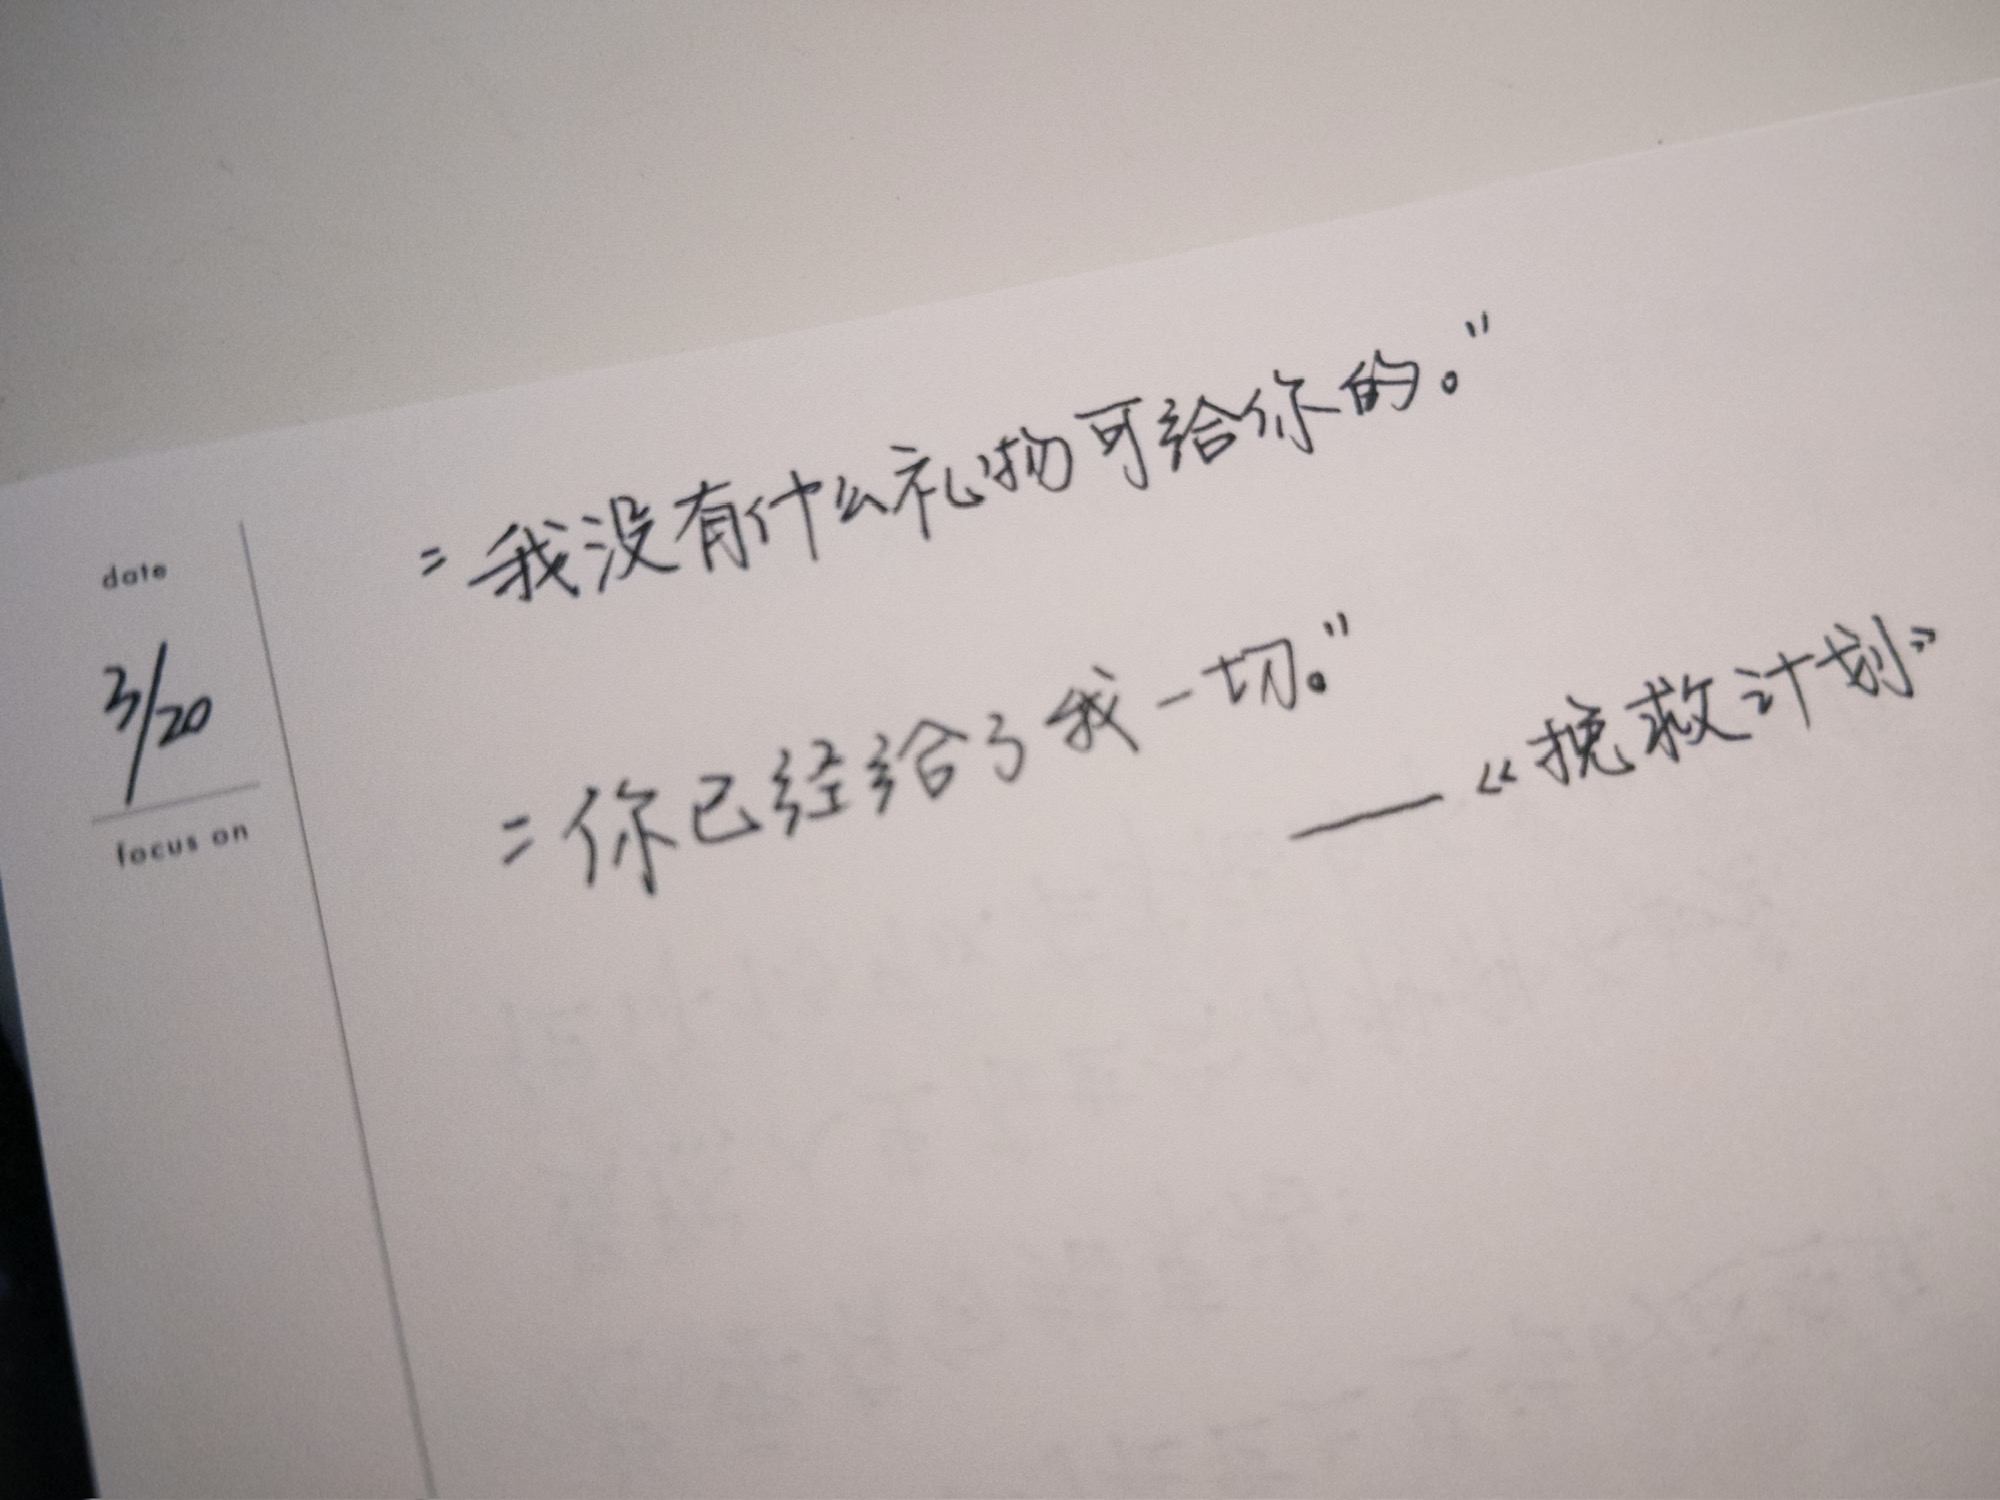 date
3/20
focus on
"我没有什么礼物可给你的。"
"你已经给了我一切。"
——《挽救计划》